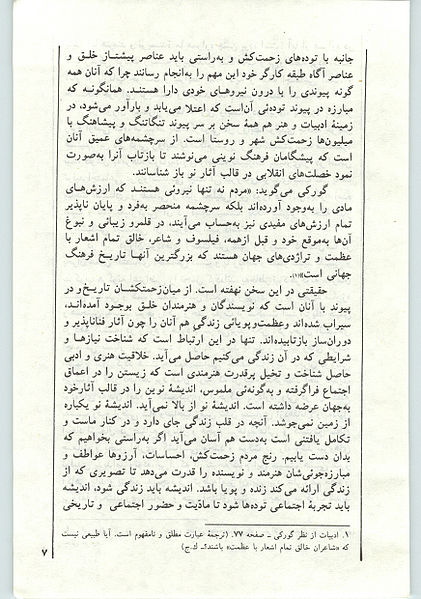 جانبه با توده‌های زحمت‌کش و به‌راستی باید عناصر پیشتـاز خلـق و
عناصر آگاه طبقه کارگر خود این مهم را به‌انجام رسانند چرا که آنان همه
گونه پیوندی را با درون نیروهـای خودی دارا هستنـد. همانگونـه که
مبارزه در پیوند توده‌ئی آن‌است که اعتلا می‌یابد و بارآور می‌شود، در
زمینهٔ ادبیات و هنر هم همهٔ سخن بر سر پیوند تنگاتنگ و پیشاهنگ با
میلیون‌ها زحمت‌کش شهر و روستا است. از سرچشمه‌های عمیق آنان
است که پیشگامان فرهنگ نوینی می‌نوشند تا بازتاب آنرا به‌صورت
نمود خصلت‌های انقلابی در قالب آثار نو باز شناسانند.
گورکی می‌گوید: «مردم نه تنها نیروئی هستنـد که ارزش‌هـای
مادی را به‌وجود آورده‌اند بلکه سرچشمه منحصر به‌فرد و پایان ناپذیر
تمام ارزش‌های مفیدی نیز به‌حساب می‌آیند، در قلمرو زیبائی و نبوغ
آن‌ها به‌موقع خود و قبل ازهمه، فیلسوف و شاعر، خالق تمام اشعار با
عظمت و تراژدی‌های جهان هستند که بزرگترین آنهـا تاریـخ فرهنگ
جهانی است»(۱).
حقیقتی در این سخن نهفته است. از میان‌زحمتکشان تاریـخ‌و در
پیوند با آنان است که نویسندگان و هنرمندان خلـق بوجـود آمده‌انـد،
سیراب شده‌اند وعظمت‌وپویائی زندگی هم آنان را چون آثار فناناپذیر و
دوران‌ساز بازتابیده‌اند. تنها در این ارتباط است که شناخت نیازهـا و
شرایطی که در آن زندگی می‌کنیم حاصل می‌آید. خلاقیت هنری و ادبی
حاصل شناخت و تخیل پرقدرت هنرمندی است که زیستن را در اعماق
اجتماع فراگرفته و به‌گونه‌ئی ملموس، اندیشهٔ نوین را در قالب آثارخود
به‌جهان عرضه داشته است. اندیشهٔ نو از بالا نمی‌آید. اندیشهٔ نو یکباره
از زمین نمی‌جوشد. آنچه در قلب زندگی جای دارد و در کنار ماست و
تکامل یافتنی است به‌دست هم آسان می‌آید اگر به‌راستی بخواهیم که
بدان دست یابیم. رنج مردم زحمت‌کش، احساسات، آرزوها عواطف و
مبارزه‌جوئی‌شان هنرمند و نویسنده را قدرت می‌دهد تا تصویری که از
زندگی ارائه می‌کند زنده و پویا باشد. اندیشه باید زندگی شود، اندیشه
باید تجربهٔ اجتماعی توده‌ها شود تا مادّیت و حضور اجتماعی و تاریخی
۱. ادبیات از نظر گورکی ـ صفحه ۷۷. (ترجمهٔ عبارت مطلق و نامفهوم است. آیا طبیعی نیست
که «شاعران خالق تمام اشعار با عظمت» باشند؟ـ ک.ج)
۷